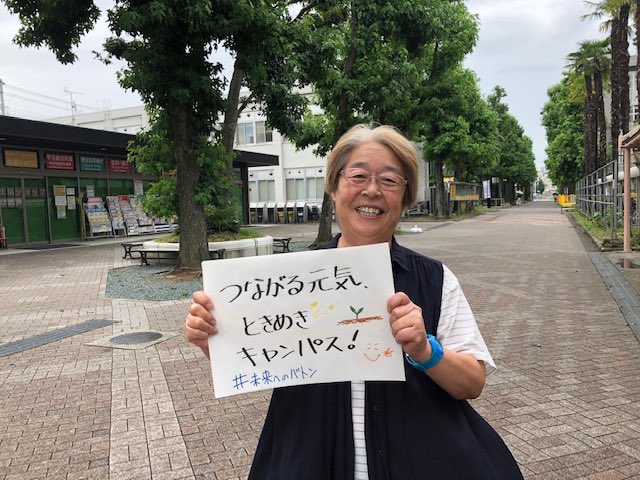 つながる元気、
ときめき
キャンパス!
#未来へのバトン